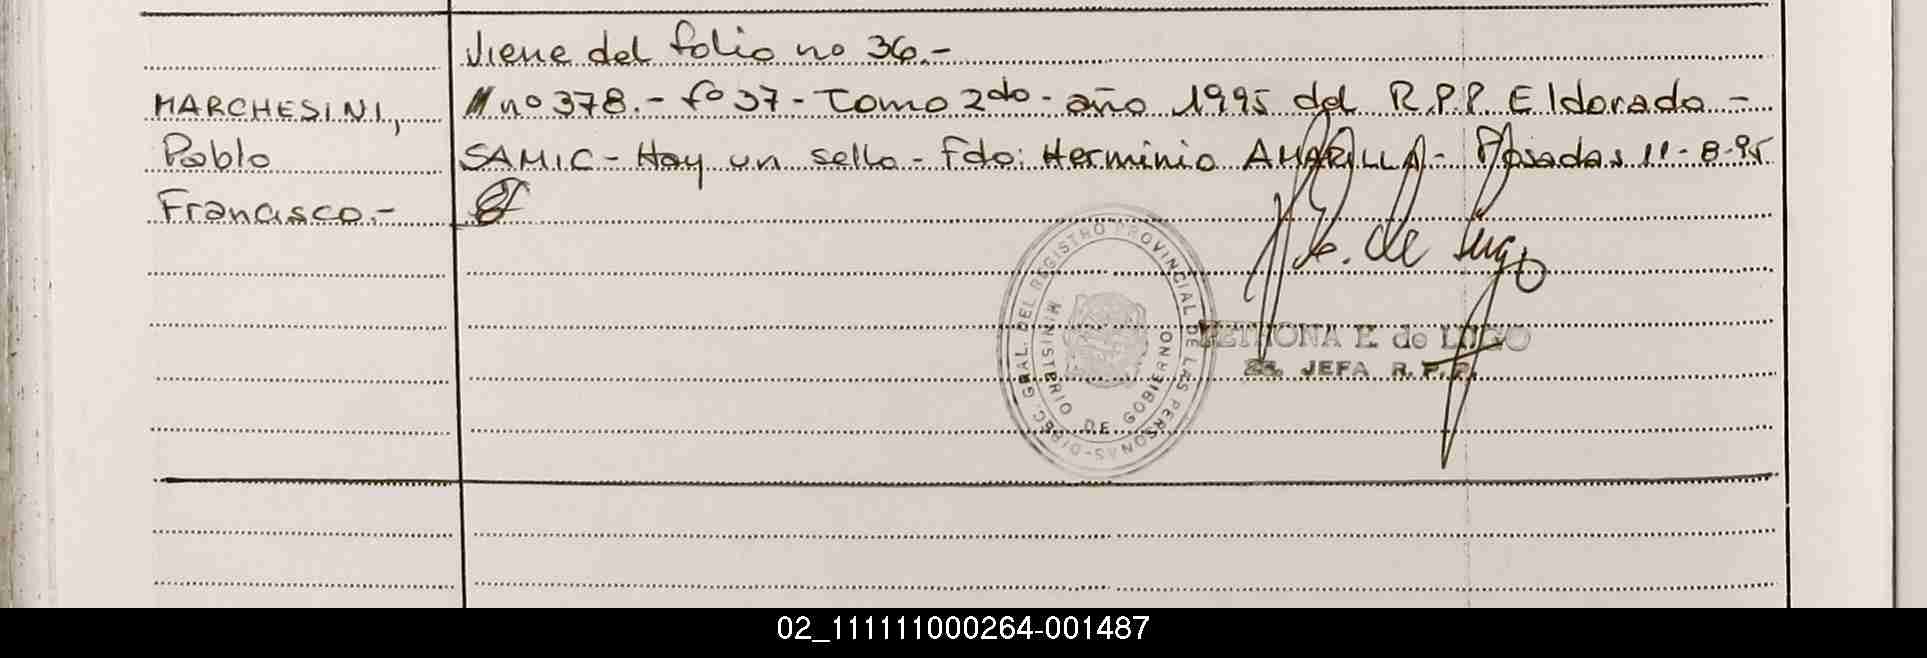 Viene del folio no 36.-
MARCHESINI,
Pablo
Francisco.-
nº 378.- fº 37 - Tomo 2do - año 1995 del R.P.P. Eldorado -
SAMIC - Hay un sello - Fdo: Herminio AMARILLA - Posadas 11-8-95
P. E. de Lugo
DIREC. GRAL. DEL REGISTRO PROVINCIAL DE LAS PERSONAS -
MINISTERIO DE GOBIERNO
PETRONA E. de LUGO
2a. JEFA R.P.P.
02_111111000264-001487